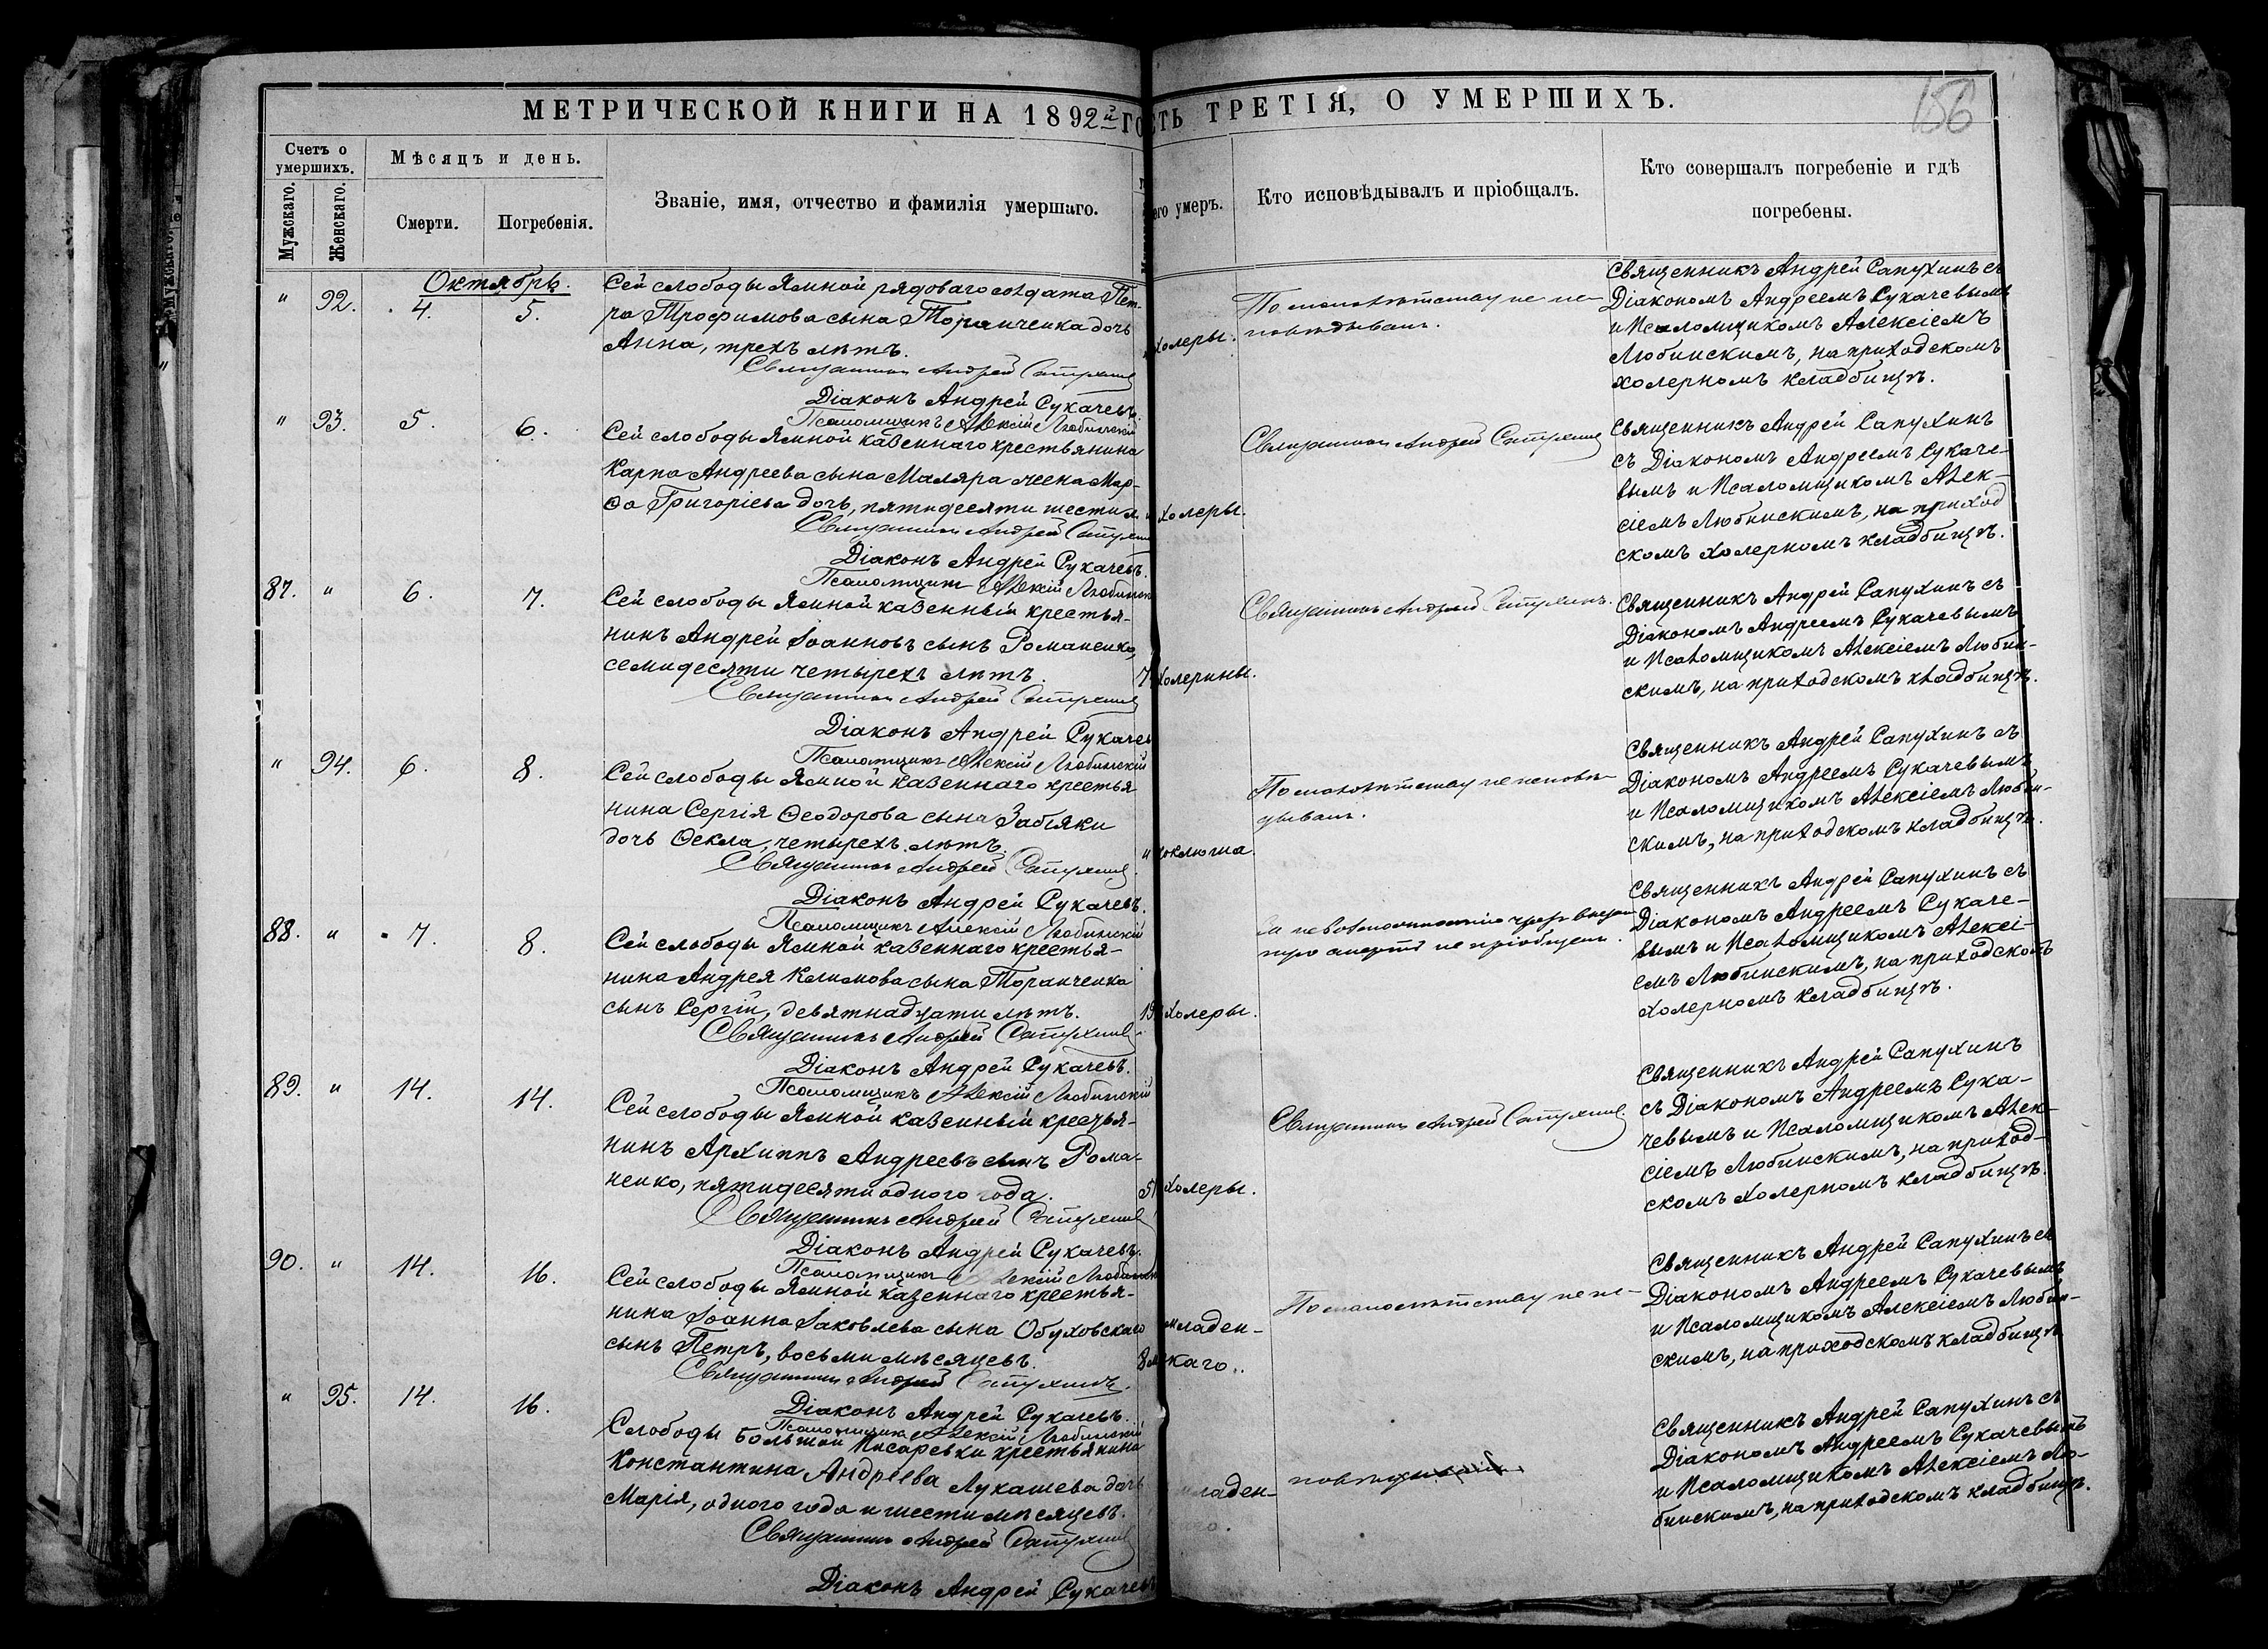 МЕТРИЧЕСКОЙ КНИГИ НА 1892й ГО
СТЬ ТРЕТІЯ, О УМЕРШИХЪ.
156
Счетъ о умершихъ.
Мужскаго.
Женскаго.
Мѣсяцъ и день.
Смерти.
Погребенія.
Званіе, имя, отчество и фамилія умершаго.
его умеръ.
Кто исповѣдывалъ и пріобщалъ.
Кто совершалъ погребеніе и гдѣ
погребены.
Октябрь.
" 92. 4. 5.
Сей слободы Ямной рядоваго солдата Пет-
ра Трофимова сына Торанченка дочь
Анна, трехъ лѣтъ.
Священникъ Андрей Сапухинъ
Діаконъ Андрей Сукачевъ.
Псаломщикъ Алексій Любинскій
холеры.
По малолѣтству не ис-
повѣдывали.
Священникъ Андрей Сапухинъ съ
Діакономъ Андреемъ Сукачевымъ
и Псаломщикомъ Алексіемъ
Любинскимъ, на приходскомъ
холерномъ кладбищѣ.
" 93. 5. 6.
Сей слободы Ямной казеннаго крестьянина
Карпа Андреева сына Маляра жена Мар-
ѳа Григоріева дочь, пятидесяти шести л.
Священникъ Андрей Сапухинъ
Діаконъ Андрей Сукачевъ.
Псаломщикъ Алексій Любинскій
холеры.
Священникъ Андрей Сапухинъ
Священникъ Андрей Сапухинъ
съ Діакономъ Андреемъ Сукаче-
вымъ и Псаломщикомъ Алек-
сіемъ Любинскимъ, на приход
скомъ холерномъ кладбищѣ.
87. " 6. 7.
Сей слободы Ямной казенный крестья-
нинъ Андрей Іоанновъ сынъ Романенко,
семидесяти четырехъ лѣтъ.
Священникъ Андрей Сапухинъ
Діаконъ Андрей Сукачев
Псаломщикъ Алексій Любинскій
7
холерины.
Священникъ Андрей Сапухинъ.
Священникъ Андрей Сапухинъ съ
Діакономъ Андреемъ Сукачевымъ
и Псаломщикомъ Алексіемъ Любин-
скимъ, на приходскомъ кладбищѣ.
" 94. 6. 8.
Сей слободы Ямной казеннаго крестья
нина Сергія Ѳеодорова сына Забіяки
дочь Ѳекла, четырехъ лѣтъ.
Священникъ Андрей Сапухинъ
Діаконъ Андрей Сукачевъ.
Псаломщикъ Алексій Любинскій
коклюша.
По малолѣтству не исповѣ-
дывали.
Священникъ Андрей Сапухинъ съ
Діакономъ Андреемъ Сукачевымъ
и Псаломщикомъ Алексіемъ Любин-
скимъ, на приходскомъ кладбищѣ.
88. " 7. 8.
Сей слободы Ямной казеннаго крестья-
нина Андрея Климова сына Торанченка
сынъ Сергій, девятнадцати лѣтъ.
Священникъ Андрей Сапухинъ
Діаконъ Андрей Сукачевъ.
Псаломщикъ Алексій Любинскій
19
холеры.
невозможностію чрезъ
смерти не пріобщенъ.
Священникъ Андрей Сапухинъ съ
Діакономъ Андреемъ Сукаче-
вымъ и Псаломщикомъ Алексі-
емъ Любинскимъ, на приходскомъ
холерномъ кладбищѣ.
89. " 14. 14.
Сей слободы Ямной казенный крестья-
нинъ Архиппъ Андреевъ сынъ Рома-
ненко, пятидесяти одного года.
Священникъ Андрей Сапухинъ
Діаконъ Андрей Сукачевъ.
Псаломщикъ Алексій Любинскій
51
холеры.
Священникъ Андрей Сапухинъ
Священникъ Андрей Сапухинъ
съ Діакономъ Андреемъ Сука-
чевымъ и Псаломщикомъ Алек-
сіемъ Любинскимъ, на приход-
скомъ холерномъ кладбищѣ.
90. " 14. 16.
Сей слободы Ямной казеннаго крестья-
нина Іоанна Іаковлева сына Обуховскаго
сынъ Петръ, восьми мѣсяцевъ.
Священникъ Андрей Сапухинъ.
Діаконъ Андрей Сукачевъ.
Псаломщикъ Алексій Любинскій
8 м
младен-
скаго.
По малолѣтству не ис-
Священникъ Андрей Сапухинъ съ
Діакономъ Андреемъ Сукачевымъ
и Псаломщикомъ Алексіемъ Любин-
скимъ, на приходскомъ кладбищѣ
" 95. 14. 16.
Слободы Большой Писаревки крестьянина
Константина Андреева Лукашева дочь
Марія, одного года и шести мѣсяцевъ.
Священникъ Андрей Сапухинъ
Діаконъ Андрей Сукачевъ
младен-
повѣдывали.
Священникъ Андрей Сапухинъ съ
Діакономъ Андреемъ Сукачевымъ
и Псаломщикомъ Алексіемъ Лю-
бинскимъ, на приходскомъ кладбищѣ.